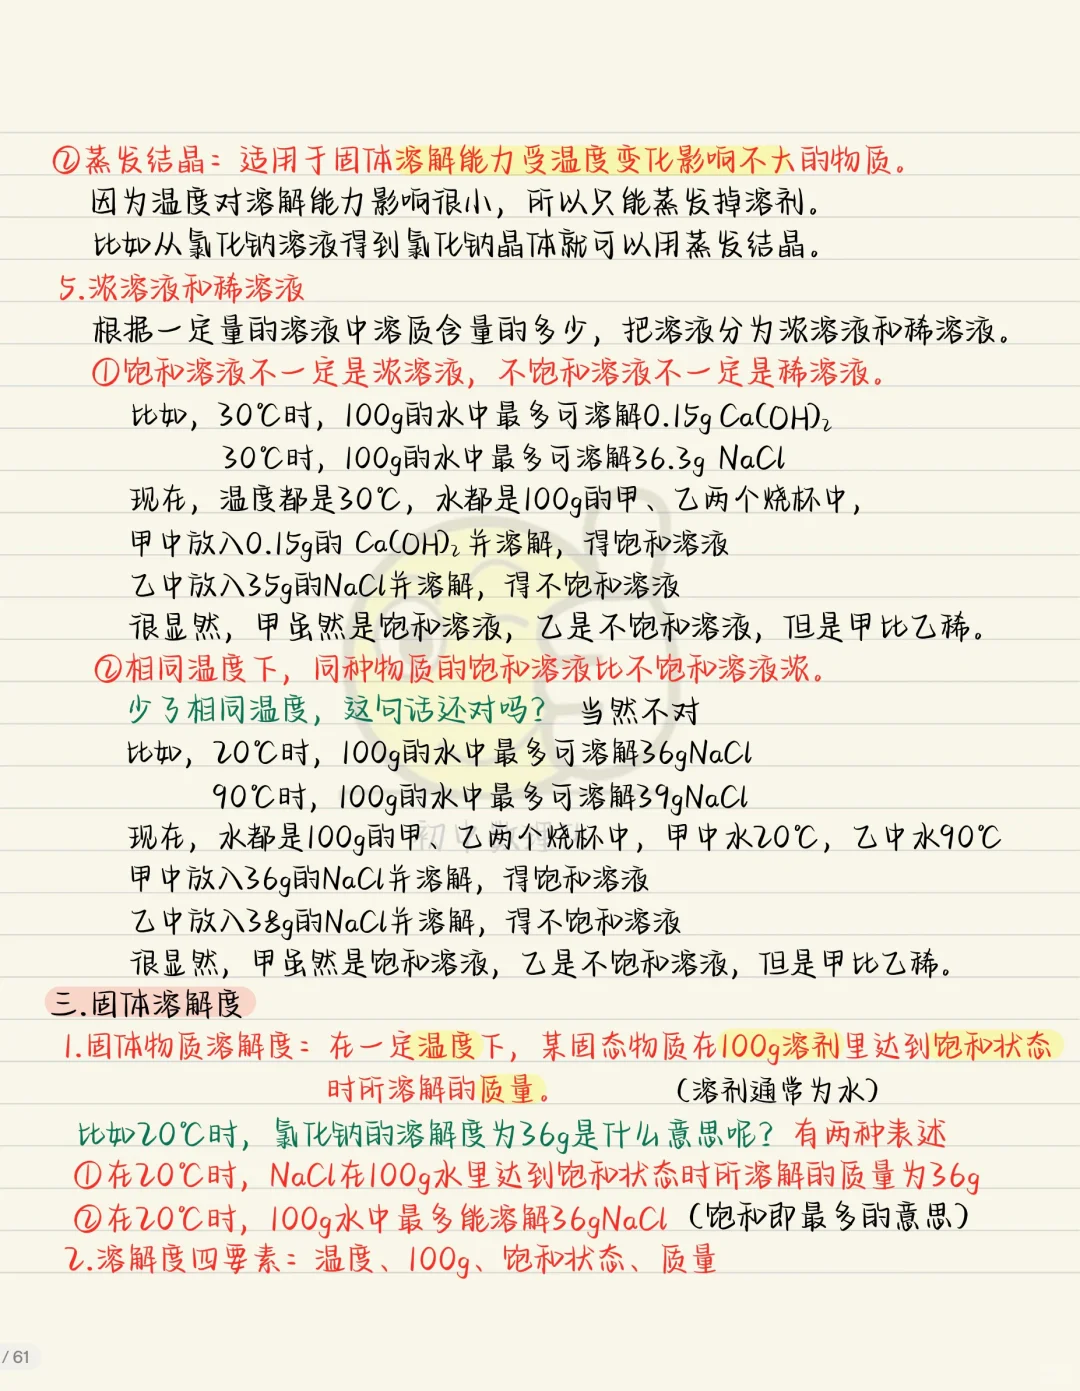 ②蒸发结晶：适用于固体溶解能力受温度变化影响不大的物质。
因为温度对溶解能力影响很小，所以只能蒸发掉溶剂。
比如从氯化钠溶液得到氯化钠晶体就可以用蒸发结晶。
5.浓溶液和稀溶液
根据一定量的溶液中溶质含量的多少，把溶液分为浓溶液和稀溶液。
①饱和溶液不一定是浓溶液，不饱和溶液不一定是稀溶液。
比如，30℃时，100g的水中最多可溶解0.15g Ca(OH)₂
30℃时，100g的水中最多可溶解36.3g NaCl
现在，温度都是30℃，水都是100g的甲、乙两个烧杯中，
甲中放入0.15g的 Ca(OH)₂并溶解，得饱和溶液
乙中放入35g的NaCl并溶解，得不饱和溶液
很显然，甲虽然是饱和溶液，乙是不饱和溶液，但是甲比乙稀。
②相同温度下，同种物质的饱和溶液比不饱和溶液浓。
少了相同温度，这句话还对吗？ 当然不对
比如，20℃时，100g的水中最多可溶解36gNaCl
90℃时，100g的水中最多可溶解39gNaCl
现在，水都是100g的甲、乙两个烧杯中，甲中水20℃，乙中水90℃
甲中放入36g的NaCl并溶解，得饱和溶液
乙中放入38g的NaCl并溶解，得不饱和溶液
很显然，甲虽然是饱和溶液，乙是不饱和溶液，但是甲比乙稀。
三.固体溶解度
1.固体物质溶解度：在一定温度下，某固态物质在100g溶剂里达到饱和状态
时所溶解的质量。 （溶剂通常为水）
比如20℃时，氯化钠的溶解度为36g是什么意思呢？有两种表述
①在20℃时，NaCl在100g水里达到饱和状态时所溶解的质量为36g
②在20℃时，100g水中最多能溶解36gNaCl（饱和即最多的意思）
2.溶解度四要素：温度、100g、饱和状态、质量
/ 61